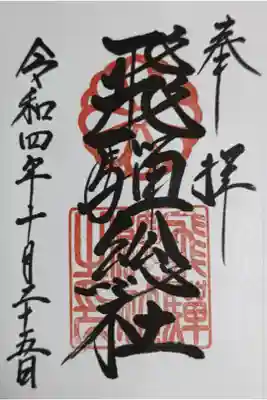 奉拝
飛騨総社
令和四年十一月二十五日